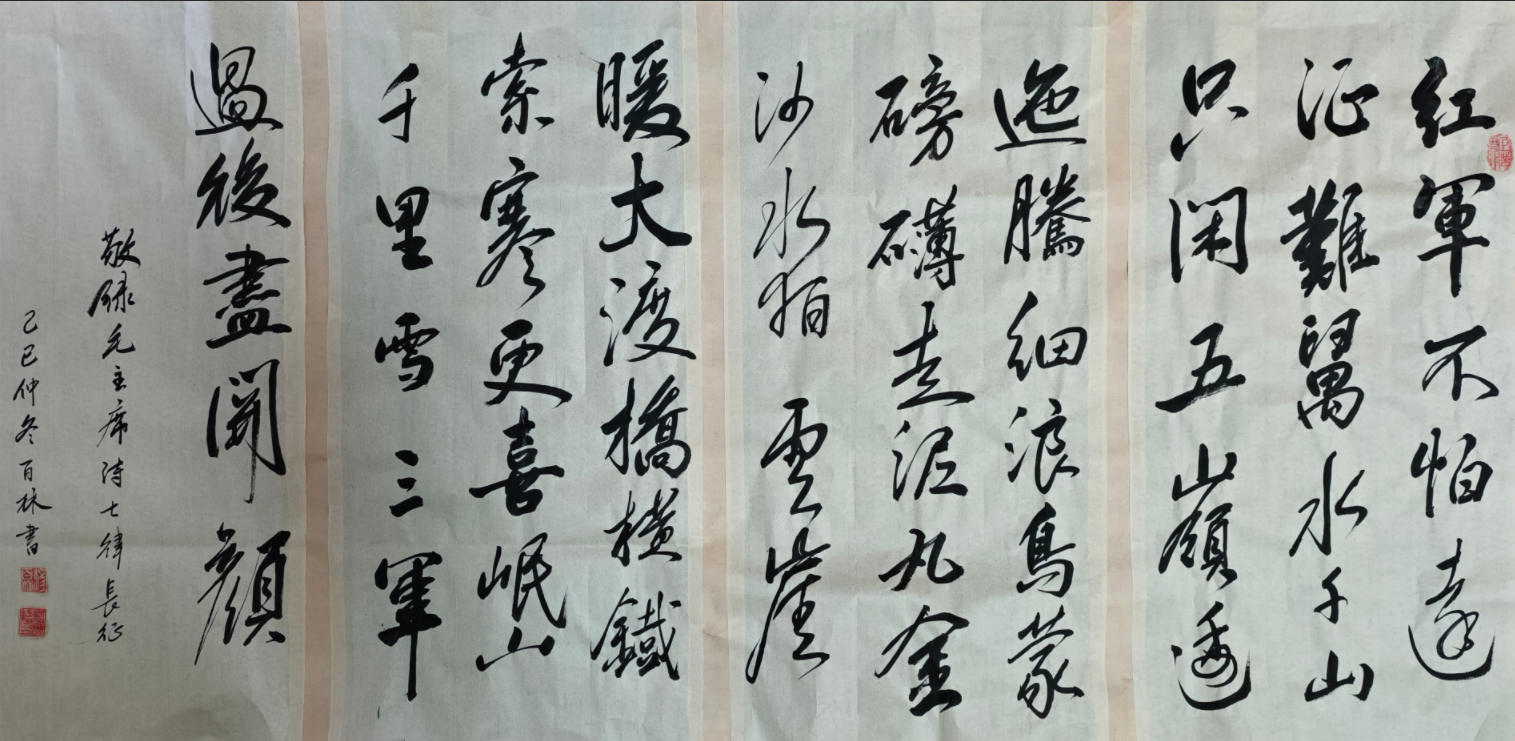 紅軍不怕遠
征難萬水千山
只閑五嶺逶
迤騰細浪烏蒙
磅礴走泥丸金
沙水拍雲崖
暖大渡橋橫鐵
索寒更喜岷山
千里雪三軍
過後盡開顏
敬録毛主席詩七律長征
己巳仲冬百林書